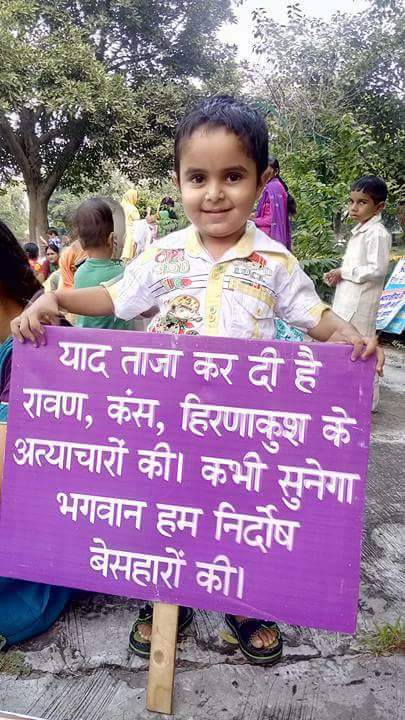 याद ताजा कर दी है
रावण, कंस, हिरणाकुश के
अत्याचारों की। कभी सुनेगा
भगवान हम निर्दोष
बेसहारों की।